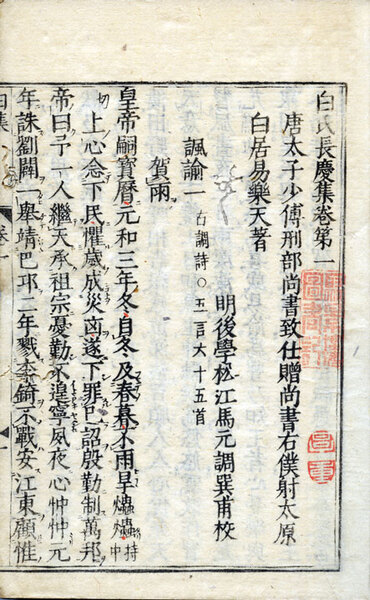 白氏長慶集卷第一
唐太子少傅刑部尚書致仕贈尚書右僕射太原
白居易樂天著
明後學松江馬元調巽甫校
諷諭一 古調詩○五言六十五首
賀雨
皇帝嗣寶曆元和三年冬自冬及春暮不雨旱爞爞持中
切上心念下民懼歲成災凶遂下罪已詔殷勤制萬邦
帝曰予一人繼天承祖宗憂勤不遑寧夙夜心忡忡元
年誅劉闢一舉靖巴邛二年戮李錡不戰安江東顧惟